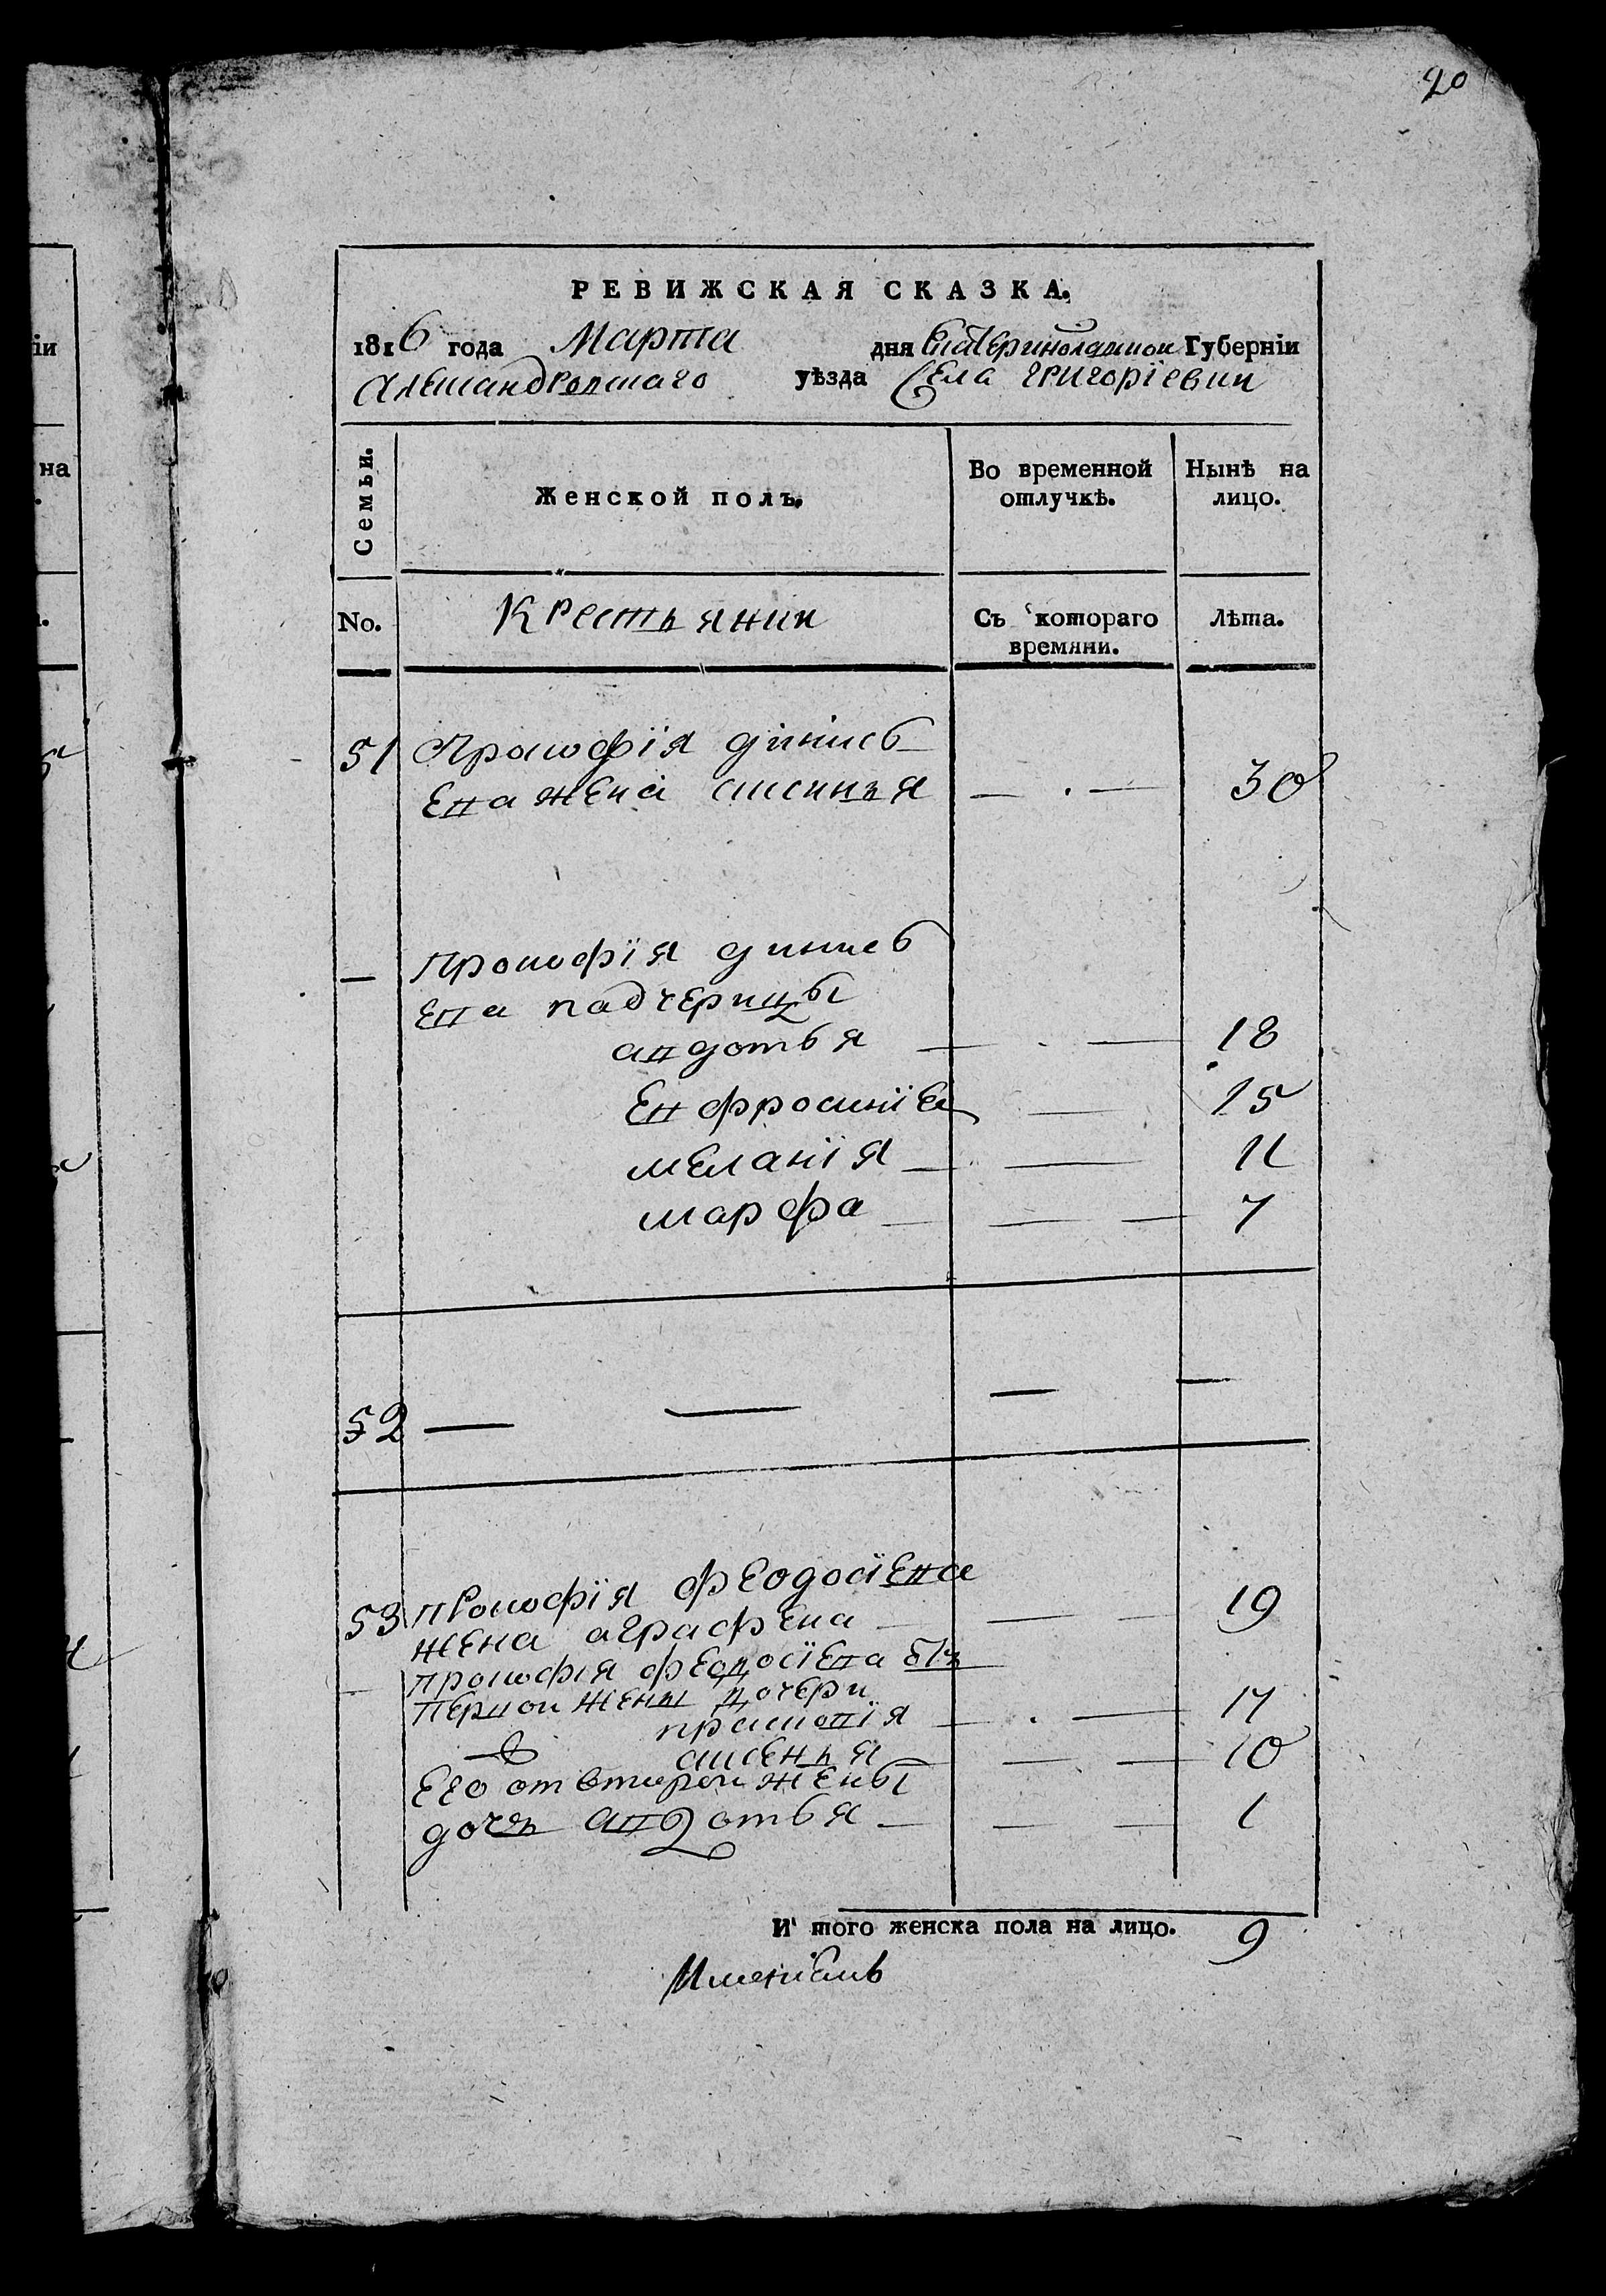 20
РЕВИЖСКАЯ СКАЗКА.
1816 года Марта дня Екатеринославской Губерніи
Александровскаго уѣзда Села Григорiевки
Семьи.
Женской полъ.
Во временной отлучкѣ.
Нынѣ на лицо.
No.
Крестьянки
Съ котораго времяни.
Лѣта.
51 Прокофiя динисо
ева жена аксинья 30
Прокофiя динисо
ева падчерицы
авдотья 18
Евфросинiя 15
меланiя 11
марфа 7
52
53 Прокофiя феодосiева
жена аграфена 19
прокофiя феодосiева отъ
первой жены дочери
14
аксенья 10
Его от второй жены
дочь авдотья 1
И того женска пола на лицо. 9
iи
на